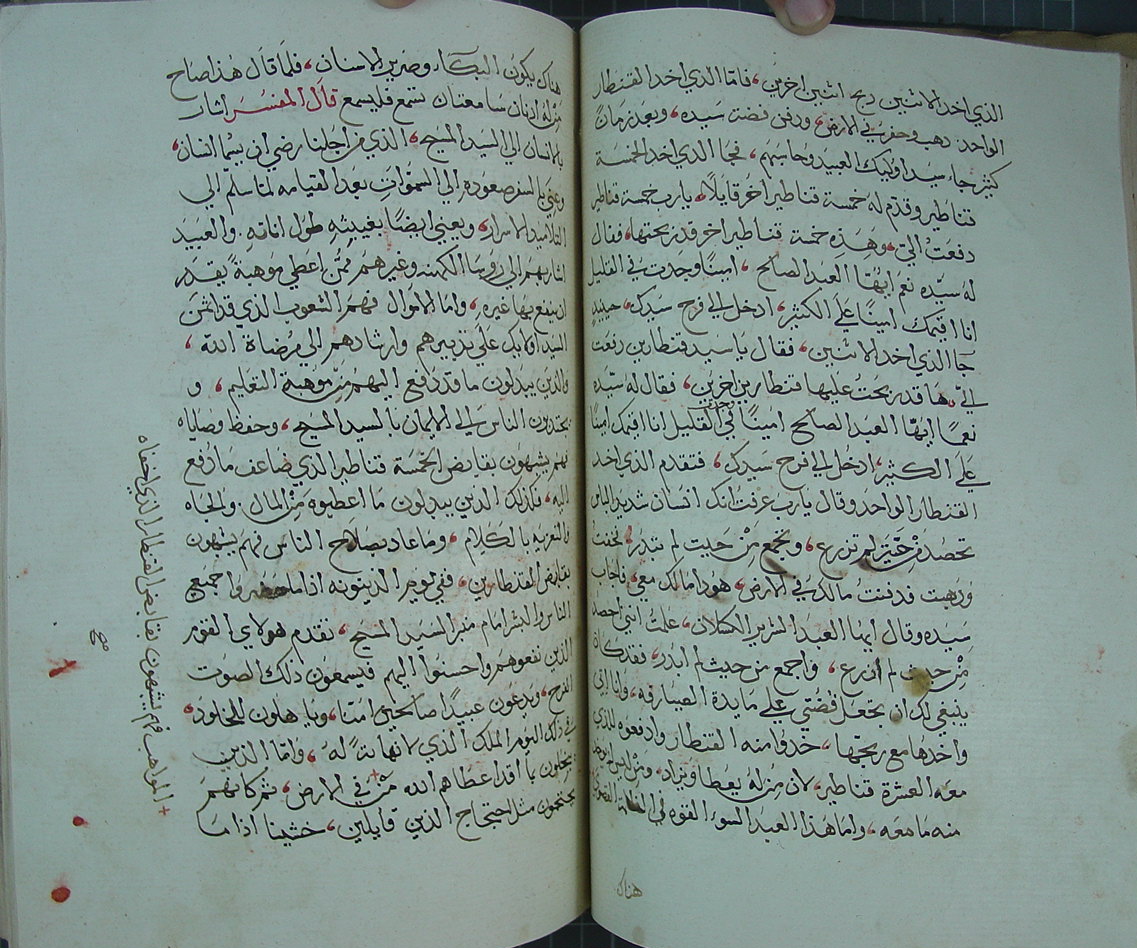 الذي اخد الاثنين ربح اثنين اخرين، فاما الذي اخد القنطار
الواحد دهب وحفر في الارض، ودفن فضت سيده، وبعد زمان
كثير جاء سيد اوليك العبيد وحاسبهم، فجا الذي اخد الخمسة
قناطير وقدم له خمسة قناطير اخر قايلا، يارب خمسة قناطير
دفعت الي، وهذه خمسة قناطير اخر قد ربحتها، فقال
له سيده نعم ايها العبد الصالح، امينًا وجدت في القليل
انا اقيمك امينًا على الكثير، ادخل الى فرح سيدك، حينيد
جا الذي اخد الاثنين، فقال يا سيد قنطارين دفعت
الي، ها قد ربحت عليها قنطارين اخرين، فقال له سيده
نعمًا ايها العبد الصالح امينًا وجدت في القليل انا اقيمك امينًا
على الكثير، ادخل الى فرح سيدك، فتقدم الذي اخد
القنطار الواحد وقال يارب عرفت انك انسان شديد الباس
تحصد من حيث لم تزرع، وتجمع من حيت لم تبدر، فخفت
ودهبت فدفنت مالك في الارض، هودا مالك معي، فاجاب
سيده وقال ايها العبد الشرير الكسلان، علمت انني احصد
من حيث لم ازرع، واجمع من حيث لم ابدر، فقد كان
ينبغي لك ان تجعل فضتي على مايدة الصيارفه، وانا اتي
واخدها مع ربحها، خدوا منه القنطار وادفعوه للذي
معه العشرة قناطير، لان من له يعطا ويزاد، ومن ليس له يوخد
منه ما معه، واما هذا العبد السوء القوه في الظلمة القصوى
هناك
هناك يكون البكاء وصرير الاسنان، فلما قال هذا صاح
من له ادنان سامعتان تسمع فليسمع قال المفسر اشار
بالانسان الى السيد المسيح، الذي من اجلنا رضي ان يسما انسان،
وعني بالسفر صعوده الى السموات بعد القيامه لما سلم الى
التلاميد الاسرار، ويعني ايضًا بغيبته طول اناته والعبيد
اشار بهم الى روسا الكهنه وغيرهم ممن اعطي موهبة يقدر
ان ينفع بها غيره، واما الاموال فهم الشعوب الذي قد اتمن
السيد اوليك على تدبيرهم وارشادهم الى مرضاة الله،
والذين يبدلون ما قد دفع اليهم من موهبة التعليم، و
يجتدبون الناس الى الايمان بالسيد المسيح، وحفظ وصاياه
فهم يشبهون بقابض الخمسة قناطير الذي ضاعف ما دفع
اليه، فكذلك الذين يبدلون ما اعطيوه من المال والجاه
والتعزيه بالكلام، وما عاد بصلاح الناس فهم يشبهون
بقابض القنطارين، ففي يوم الدينونه اذا ما حضروا جميع
الناس والبشر امام منبر السيد المسيح، تقدم هولاي القوم
الذين نفعوهم واحسنوا اليهم فيسمعون ذلك الصوت
الفرح، ويدعون عبيدًا صالحين امنا، ويا هلون للخلود،
في ذلك اليوم الملك الذي لا نهاية له، واما الذين
يبخلون بما قد اعطاهم الله من في الارض، ثم كانهم
يحتجون مثل احتجاج الذين قايلين، خشينا اذا ما
المواهب فهم يشبهون بقابض القنطار الذي اخفاه
صح